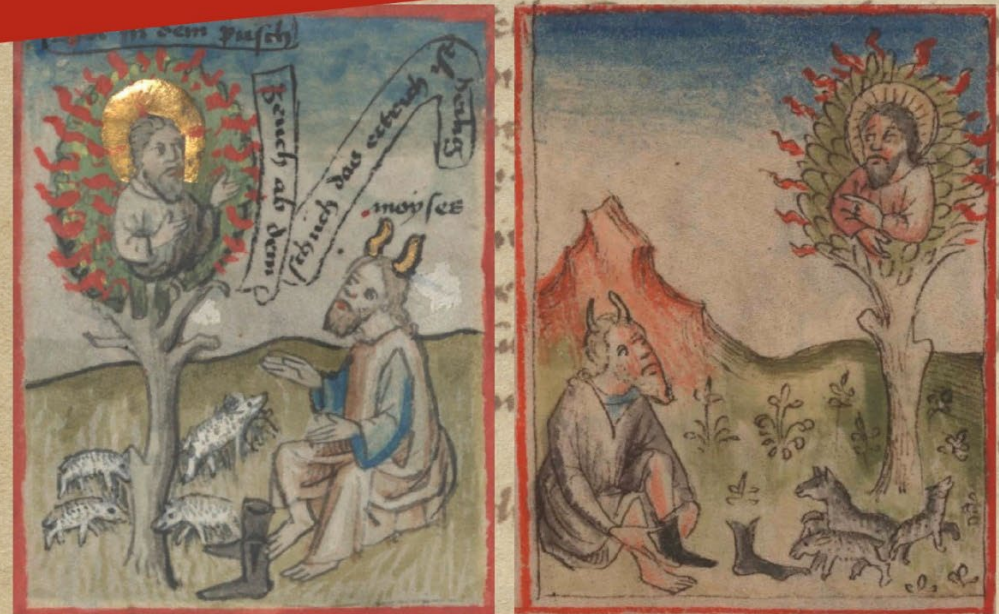 in dem pusch
zeuch ab dein
schuch das ertrich
moyses